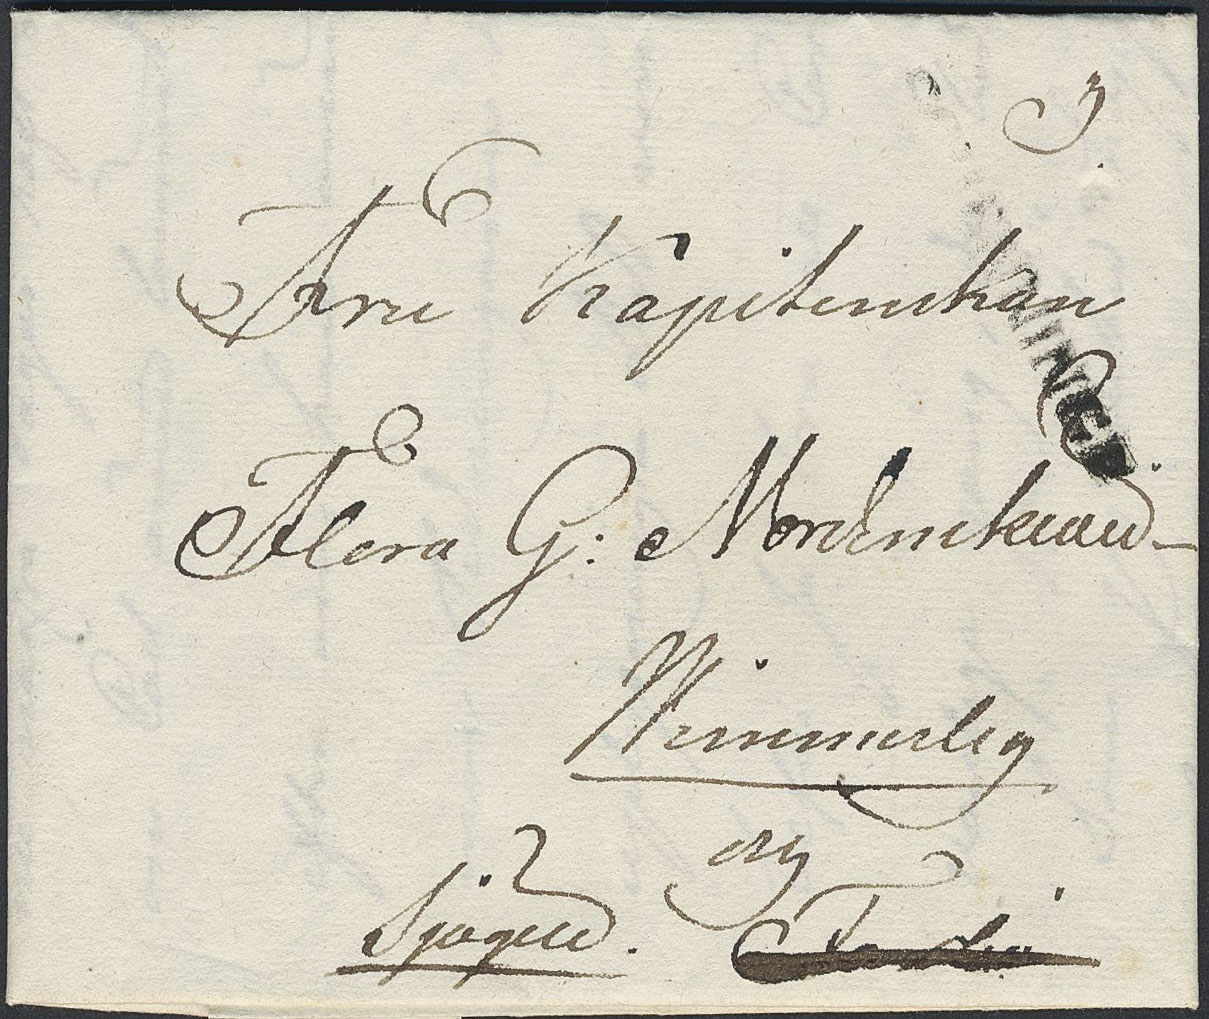 3.
Fru Kapitenskan
Flora G: Nordenskiöld
Wimmerby
och
Sjögerd.